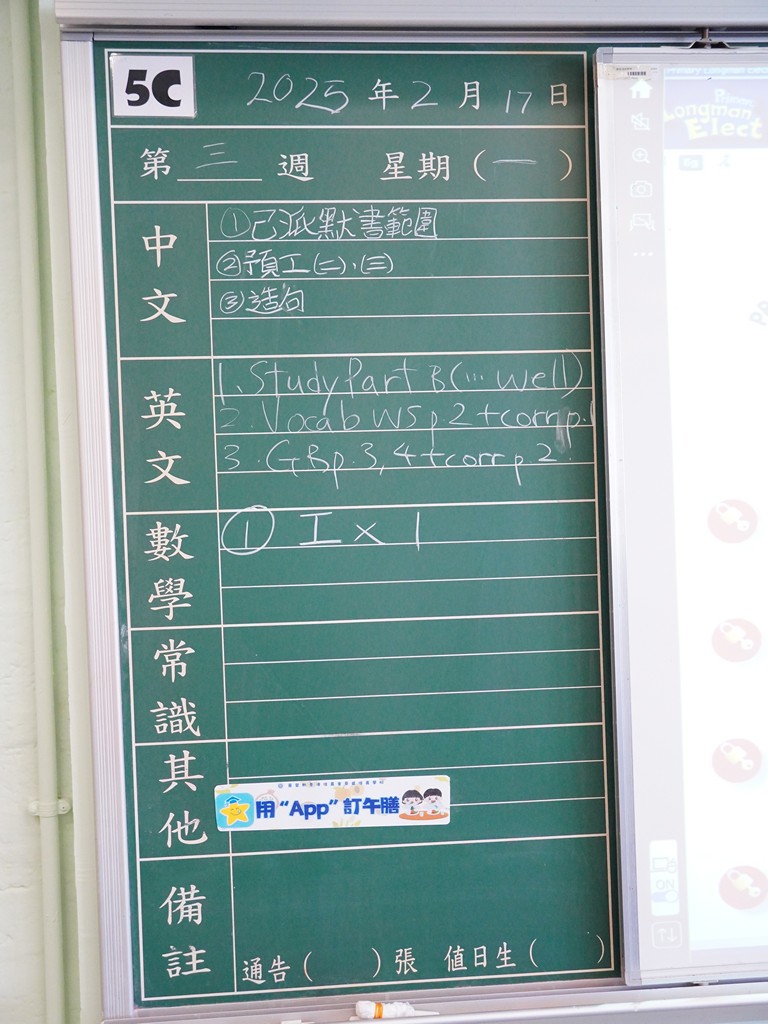 5C 2025年2月17日
第三週 星期(一)
中文
①己派默書範圍
②預工(二)、(三)
③造句
英文
1. Study Part B (... well)
2. Vocab WS p.2 + corr p.1
3. GB p.3,4 + corr p.2
數學
① I x 1
常識
其他
用“App”訂午膳
備註
通告( )張 值日生( )
Longman
Elect